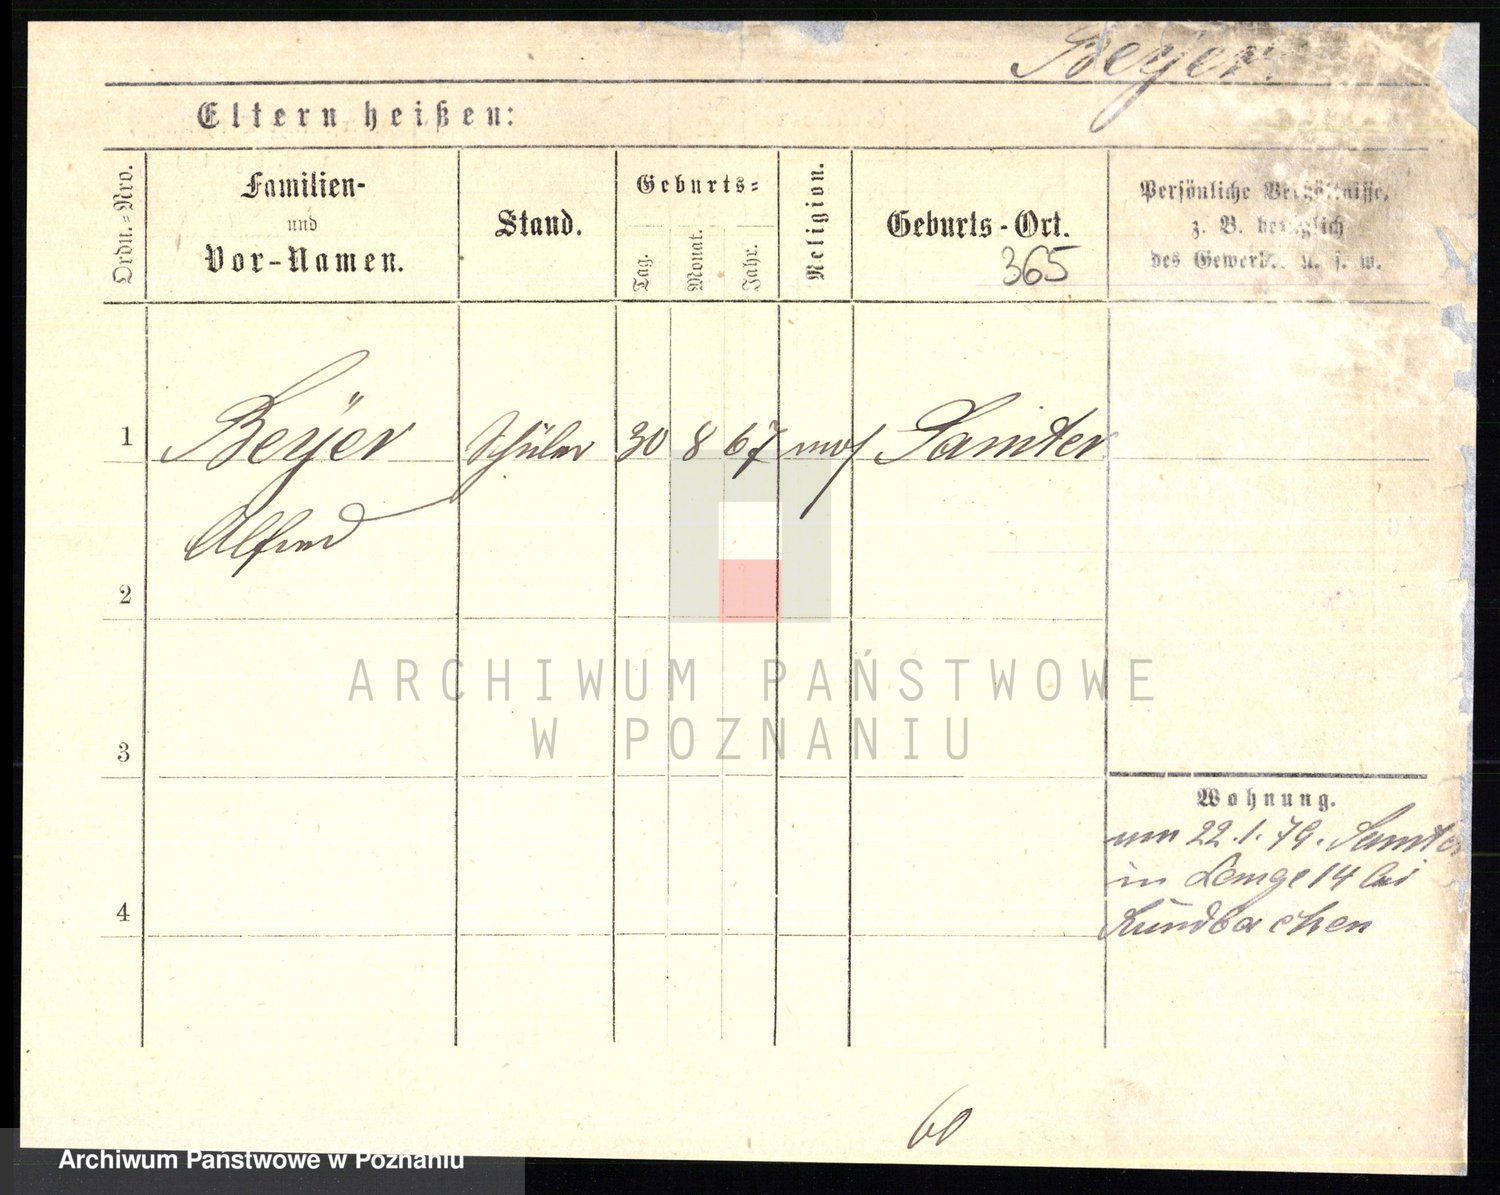 Beyer.
Eltern heißen:
Ordn.=Nro.
Familien-
und
Vor-Namen.
Stand.
Geburts=
Tag.
Monat.
Jahr.
Religion.
Geburts-Ort.
365
Persönliche Verhältnisse,
z. B. bezüglich
des Gewerbes u. s. w.
1 Beÿer Schüler 30 8 67 mos Samter
Alfred
2
3
4
ARCHIWUM PAŃSTWOWE
W POZNANIU
Wohnung.
um 22.1.79. Samter
in Lange 14 bei
60
Archiwum Państwowe w Poznaniu